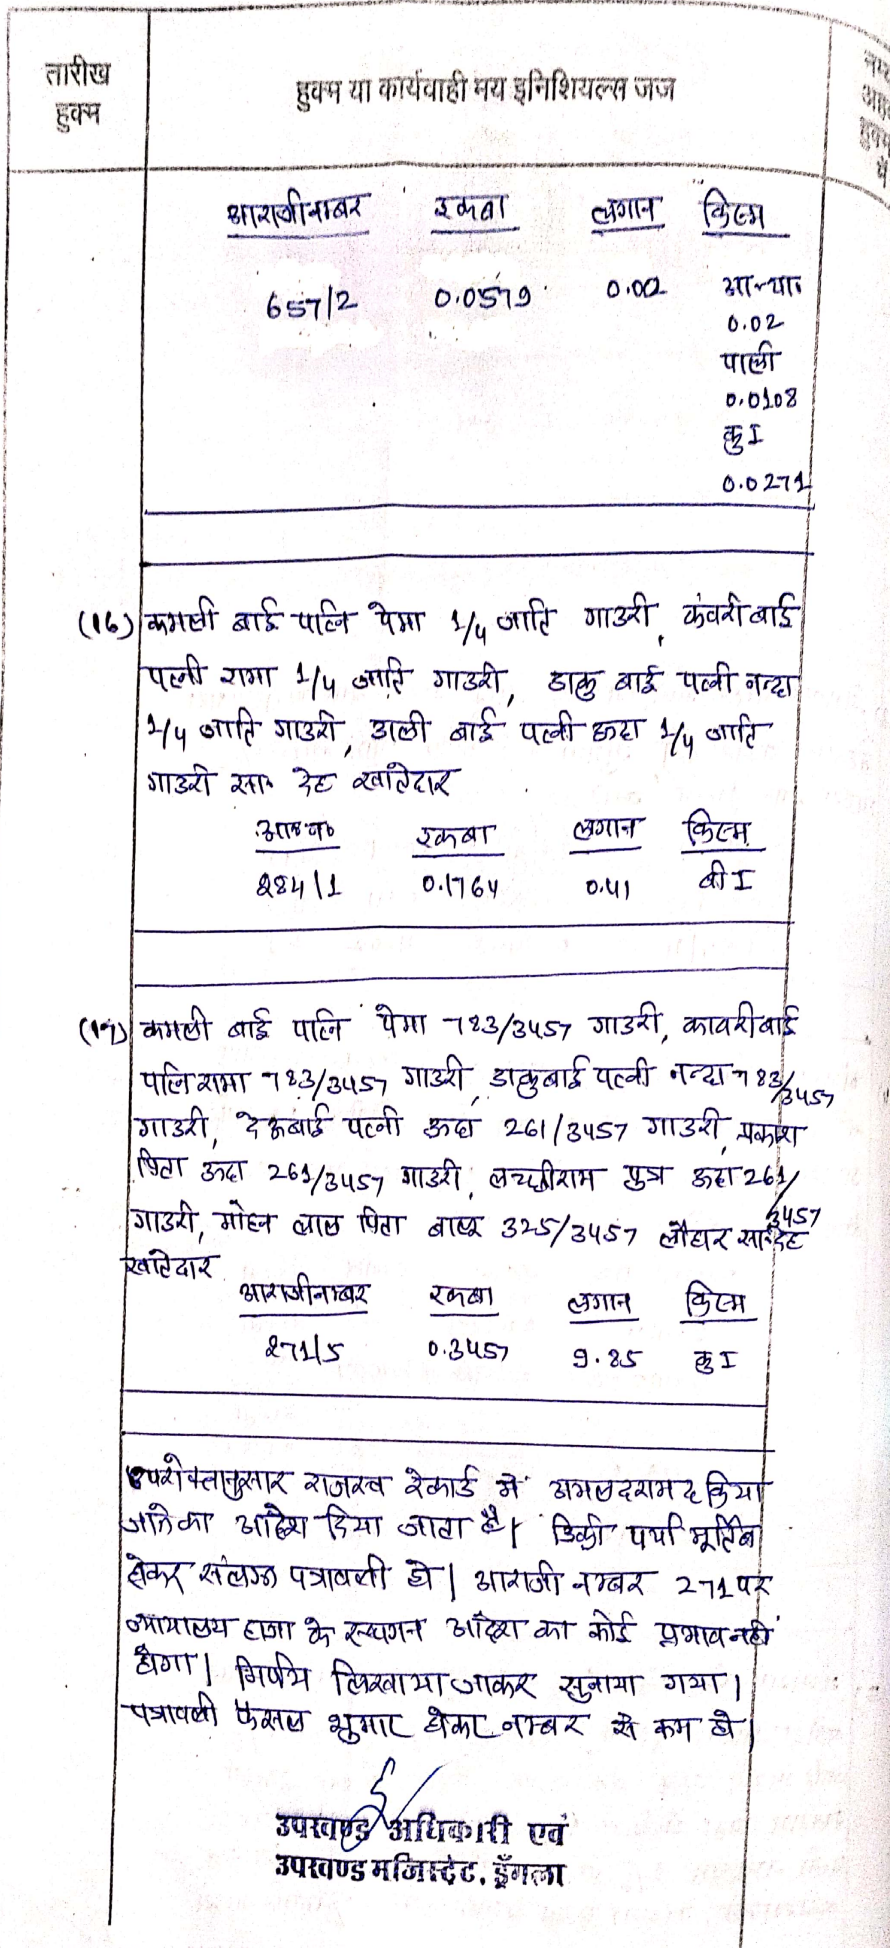 तारीख
हुक्म
हुक्म या कार्यवाही मय इनिशियल्स जज
आराजीनम्बर रकबा लगान किस्म
657/2 0.0579 0.02
0.02
पाली
0.0108
कु I
0.0271
(16) कमली बाई पत्नि पेमा 1/4 जाति गाडरी, कंवरी बाई
पत्नी रामा 1/4 जाति गाडरी, डाकु बाई पत्नी नन्दा
1/4 जाति गाडरी, डाली बाई पत्नी ऊदा 1/4 जाति
गाडरी सा. देह खातेदार
आ.न. रकबा लगान किस्म
284/1 0.1764 0.41 बी I
(17) कमली बाई पत्नि पेमा 783/3457 गाडरी, कावरी बाई
पत्नि रामा 783/3457 गाडरी, डाकुबाई पत्नी नन्दा 783/3457
गाडरी, देऊबाई पत्नी ऊदा 261/3457 गाडरी, प्रकाश
पिता ऊदा 261/3457 गाडरी, लच्छीराम पुत्र ऊदा 261/3457
गाडरी, मोहन लाल पिता बाबर 325/3457 लौहार सा. देह
खातेदार
आराजीनम्बर रकबा लगान किस्म
271/5 0.3457 9.85 कु I
उपरोक्तानुसार राजस्व रेकार्ड में अमलदरामद किया
जाने का आदेश दिया जाता है। डिक्री पर्चा मूर्तिब
होकर संलग्न पत्रावली हो। आराजी नम्बर 271 पर
न्यायालय हाजा के स्थगन आदेश का कोई प्रभाव नहीं
होगा। निर्णय लिखाया जाकर सुनाया गया।
पत्रावली फैसल शुमार होकर नम्बर से कम हो।
उपखण्ड अधिकारी एवं
उपखण्ड मजिस्ट्रेट, डूँगला